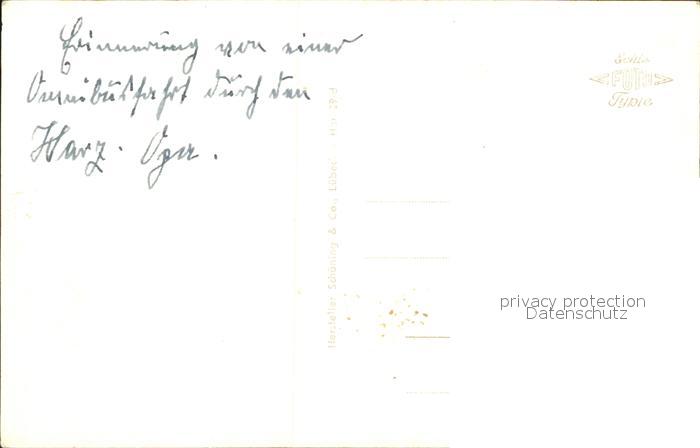 Erinnerung von einer
Omnibusfahrt durch den
Harz. Opa.
Hersteller Schöning & Co., Lübeck
Echte
FOTO
Typie
privacy protection
Datenschutz